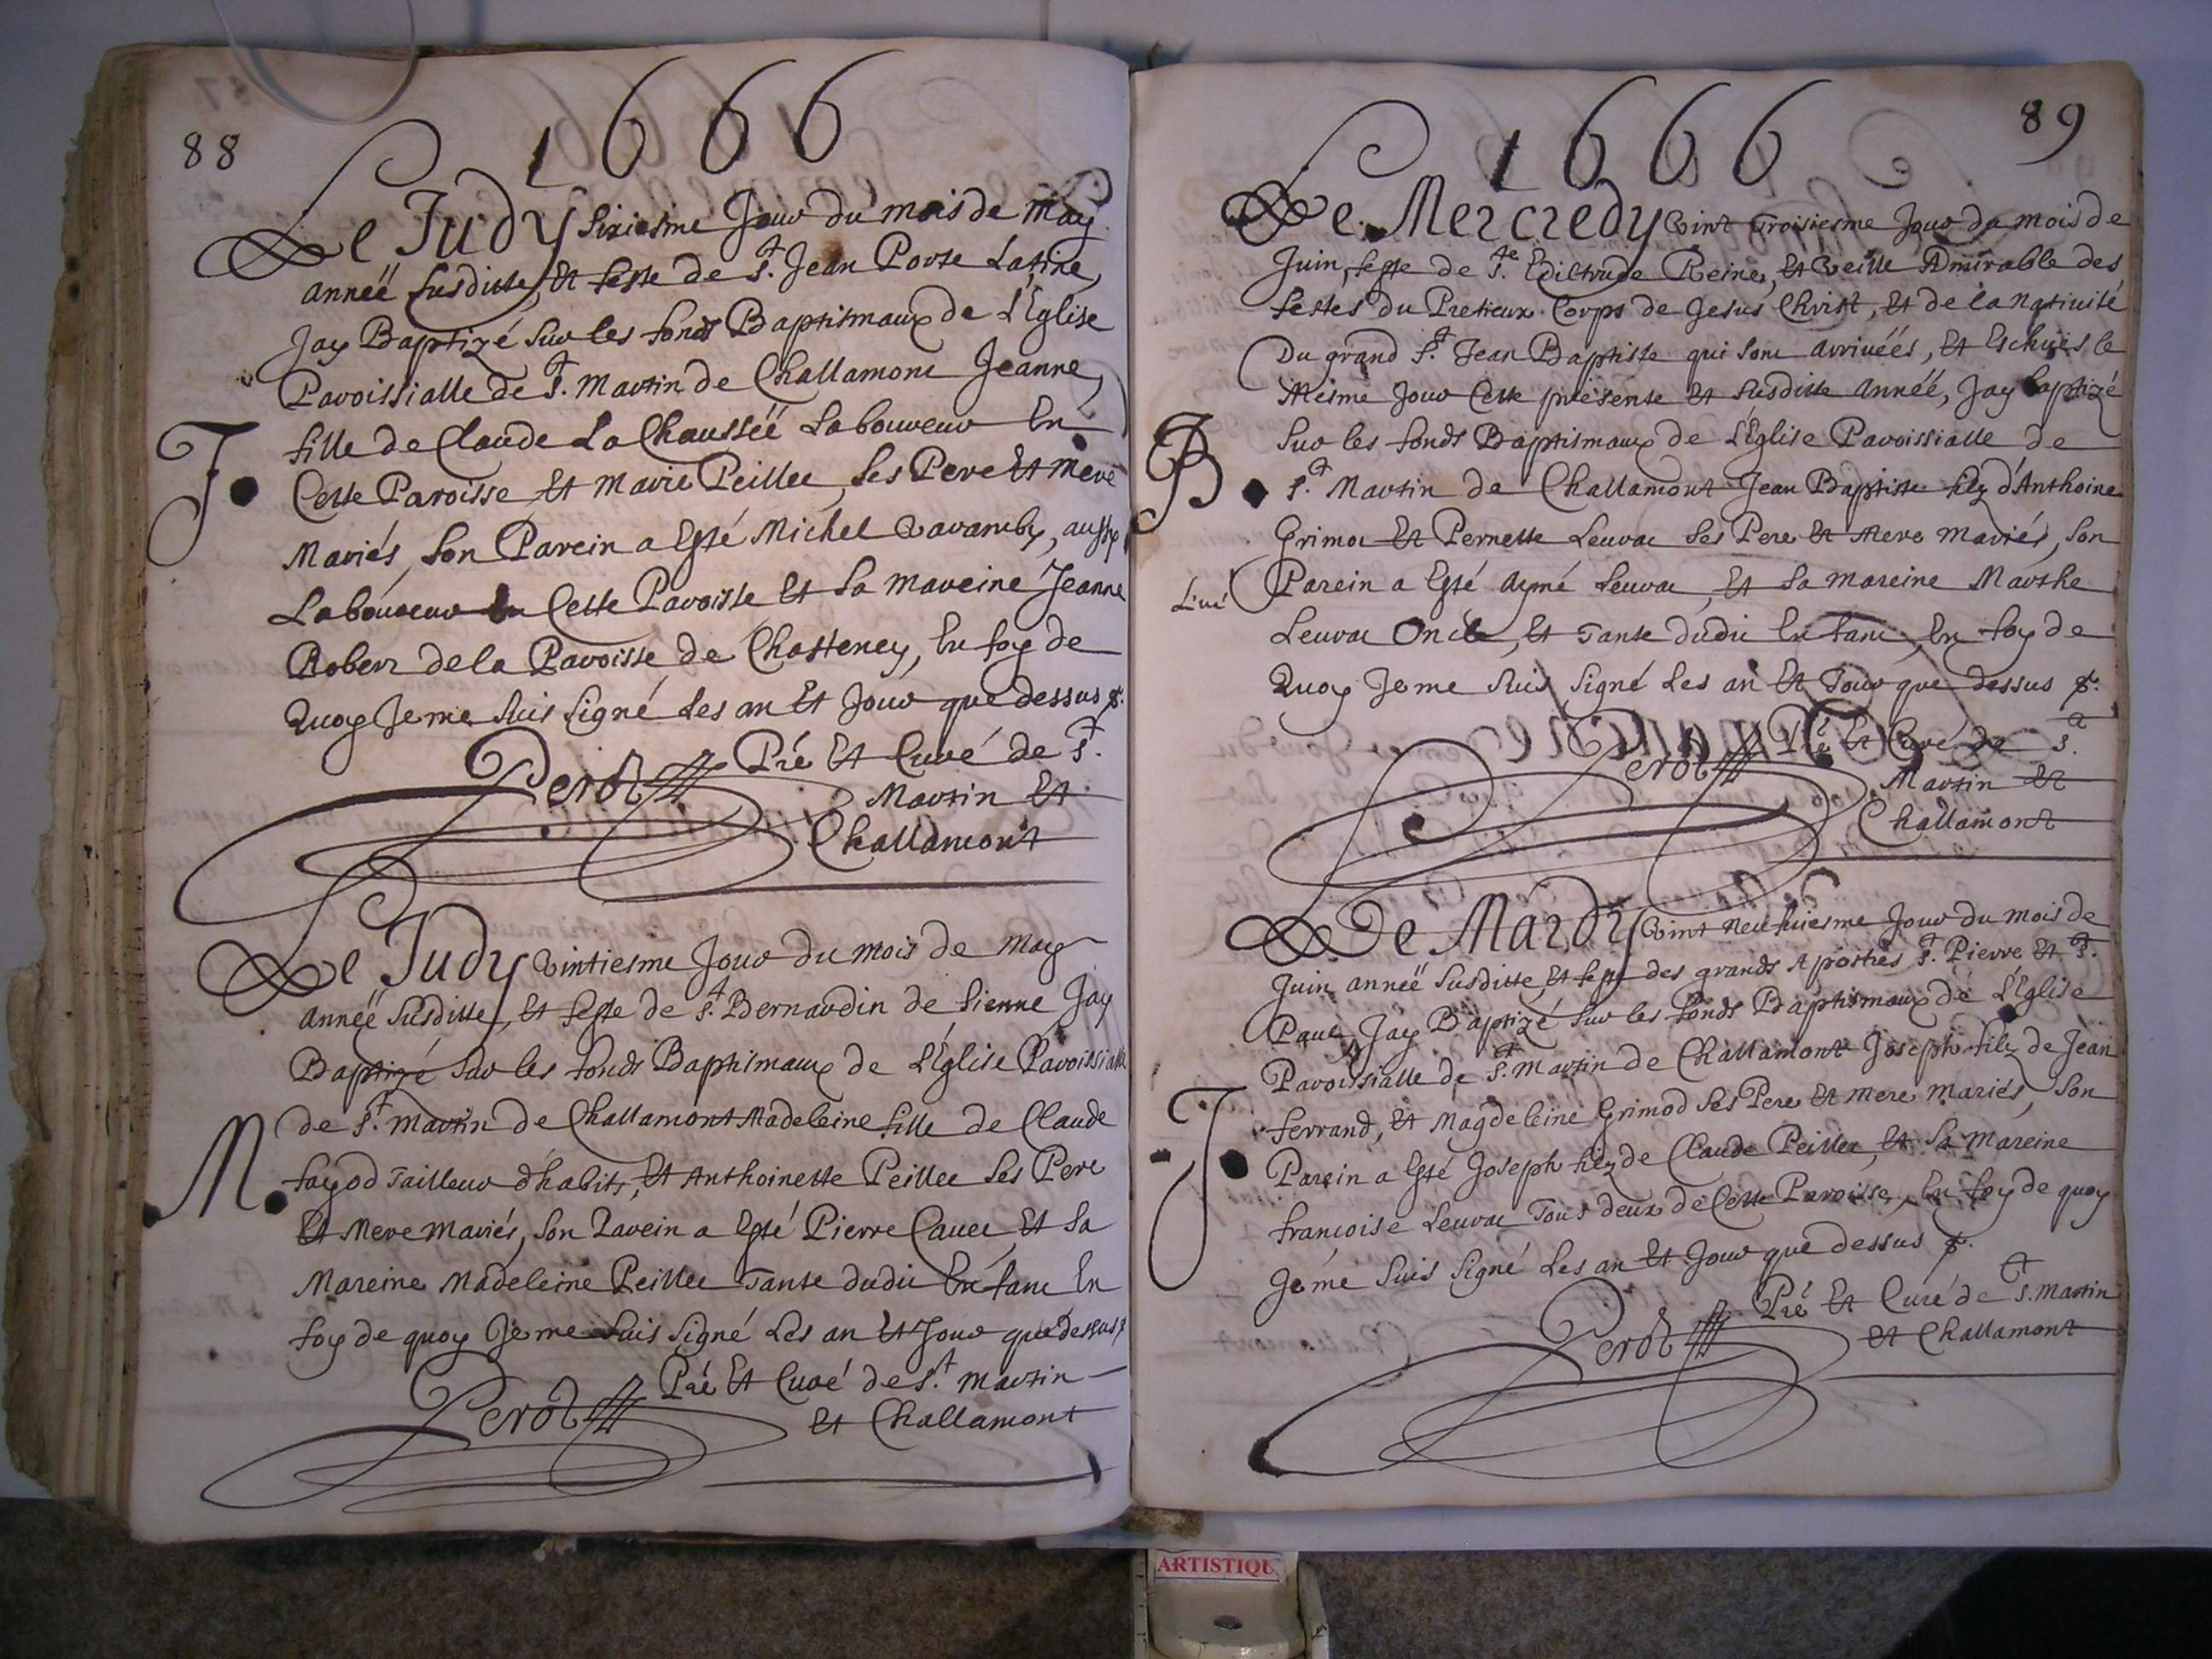 88
1666
Le Judy sixiesme Jour du mois de may
anneë susditte, Et feste de St. Jean Porte Latine,
Jay Baptizé sur les fonds Baptismaux de L'Église
Paroissialle de St. Martin de Challamont Jeanne
fille de Claude La Chausseë Laboureur En
J. Cette Paroisse Et Marie Peillee, ses Pere Et Mere
Mariés, son Parein a Esté Michel, aussy
Laboureur En Cette Paroisse Et sa mareine Jeanne
Robert de la Paroisse de Chasteney, En foy de
Quoy Je me suis signé Les an Et Jour que dessus
Perot Pré Et Curé de St.
Martin Et
Challamont
Le Judy vintiesme Jour du mois de may
anneë susditte, Et feste de St. Bernardin de Sienne Jay
Baptizé sur les fonds Baptismaux de L'Église Paroissialle
de St. Martin de Challamont Madeleine fille de Claude
M. fayod Tailleur d'habits, Et Anthoinette Peillee ses Pere
Et Mere Mariés, son Parein a Esté Pierre Et sa
Mareine Madeleine Peillee Tante dudit Enfant En
foy de quoy Je me suis signé Les an Et Jour que dessus
Perot Pré Et Curé de St. Martin
Et Challamont
1666
89
Le Mercredy vint Troisiesme Jour du mois de
Juin, feste de Ste. Ediltrude Reine, Et veille Admirable des
festes du Pretieux Corps de Jesus Christ, Et de la Nativité
Du grand St. Jean Baptiste qui sont arriuéés, Et Eschuës le
Mesme Jour Cette présente Et susditte Annéë, Jay baptizé
Sur les fonds Baptismaux de L'Église Paroissialle de
JB. St. Martin de Challamont Jean Baptiste filz d'Anthoine
Grimot Et Pernette Leurat ses Pere Et Mere mariés, son
Parein a Esté Aymé Leurat, Et sa mareine Marthe
Leurat Oncle, Et Tante dudit Enfant, En foy de
Quoy Je me suis signé Les an Et Jour que dessus
Perot Pré Et Curé de St.
Martin Et
Challamont
Le Mardy vint neufuiesme Jour du mois de
Juin anneë susditte, Et feste des grands Apostres St. Pierre Et St.
Paul, Jay Baptizé sur les fonds Baptismaux de L'Église
Paroissialle de St. Martin de Challamont Joseph filz de Jean
ferrand, Et Magdeleine Grimod ses Pere Et mere mariés, son
J. Parein a Esté Joseph filz de Claude Peillee, Et sa Mareine
francoise Leurat Tous deux de Cette Paroisse, En foy de quoy
Je me suis signé Les an Et Jour que dessus
Perot Pré Et Curé de St. Martin
Et Challamont
ARTISTIQU